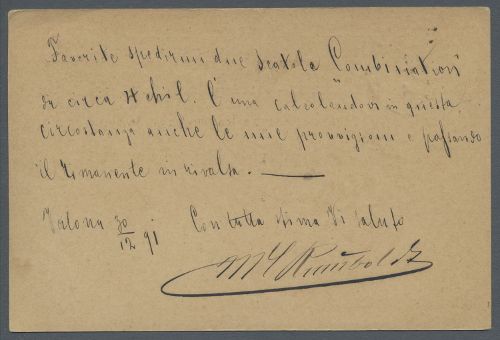 Favorite spedirmi due Scatole Combination
da circa 4 chil. l'una calcolandovi in questa
circostanza anche le mie provvigioni e passando
il rimanente in rivalsa. —
Valona 30/12 91 Con tutta stima Vi saluto